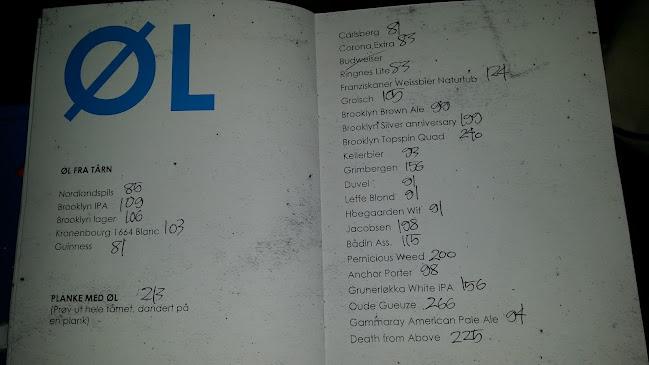 ØL
ØL FRA TÅRN
Nordlandspils 86
Brooklyn IPA 109
Brooklyn lager 106
Kronenbourg 1664 Blanc 103
Guinness 81
PLANKE MED ØL 213
(Prøv ut hele tårnet, dandert på
en plank)
Carlsberg 81
Corona Extra 83
Budweiser
Ringnes Lite 83
Franziskaner Weissbier Naturtub 124
Grolsch 105
Brooklyn Brown Ale 99
Brooklyn Silver anniversary 199
Brooklyn Topspin Quad 240
Kellerbier 93
Grimbergen 156
Duvel 91
Leffe Blond 91
Hoegaarden Wit 91
Jacobsen 198
Bådin Ass. 115
Pernicious Weed 200
Anchor Porter 98
Grunerløkka White IPA 156
Oude Gueuze 266
Gammaray American Pale Ale 94
Death from Above 225